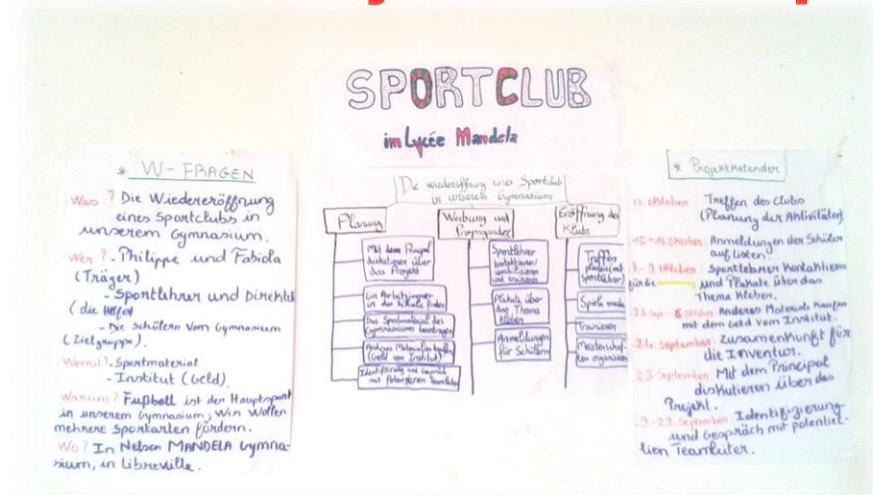 SPORTCLUB
im Lycée Mandela
* W-FRAGEN
Was? Die Wiedereröffnung
eines Sportclubs in
unserem Gymnasium.
Wer? - Philippe und Fabiola
(Träger)
- Sportlehrer und
(die
- Die Schülern vom Gymnasium
(Zielgruppe).
- Sportmaterial
- Institut (Geld)
Warum? Fußball ist der Hauptsport
in unserem Gymnasium, Wir Wollen
mehrere Sportarten fördern.
Wo? In Nelson MANDELA Gymna-
sium, in Libreville.
Die Wiederöffnung eines Sportclub
in unserem Gymnasium
Planung
Mit dem
diskutieren über
das Projekt
Ein Arbeitszimmer
Das Sportmaterial des
Gymnasiums
Anderes Materialien kaufen
(Geld vom Institut)
Identifizierung und Gespräch
mit Teamleiter
Werbung und
Propaganda
Sportlehrer
kontaktieren
und trainieren
Plakate über
das Thema
Kleben
Anmeldungen
für Schülern
Eröffnung des
Klubs
Treffen
Spiele
Trainieren
Meisterschaf-
ten organisieren
* Projektkalender
Oktober: Treffen des Clubs
(Planung der Aktivitäten)
Oktober: Anmeldungen der Schüler
auflisten.
Oktober: Sportlehrer Kontaktieren
für die und Plakate über das
Thema Kleben.
Anderes Materials Kaufen
mit dem Geld vom Institut.
September: Zusammenkunft für
die Inventur.
23 September: Mit dem Principal
diskutieren über das
Projekt.
September: Identifizierung
und Gespräch mit potentiel-
lien Teamleiter.